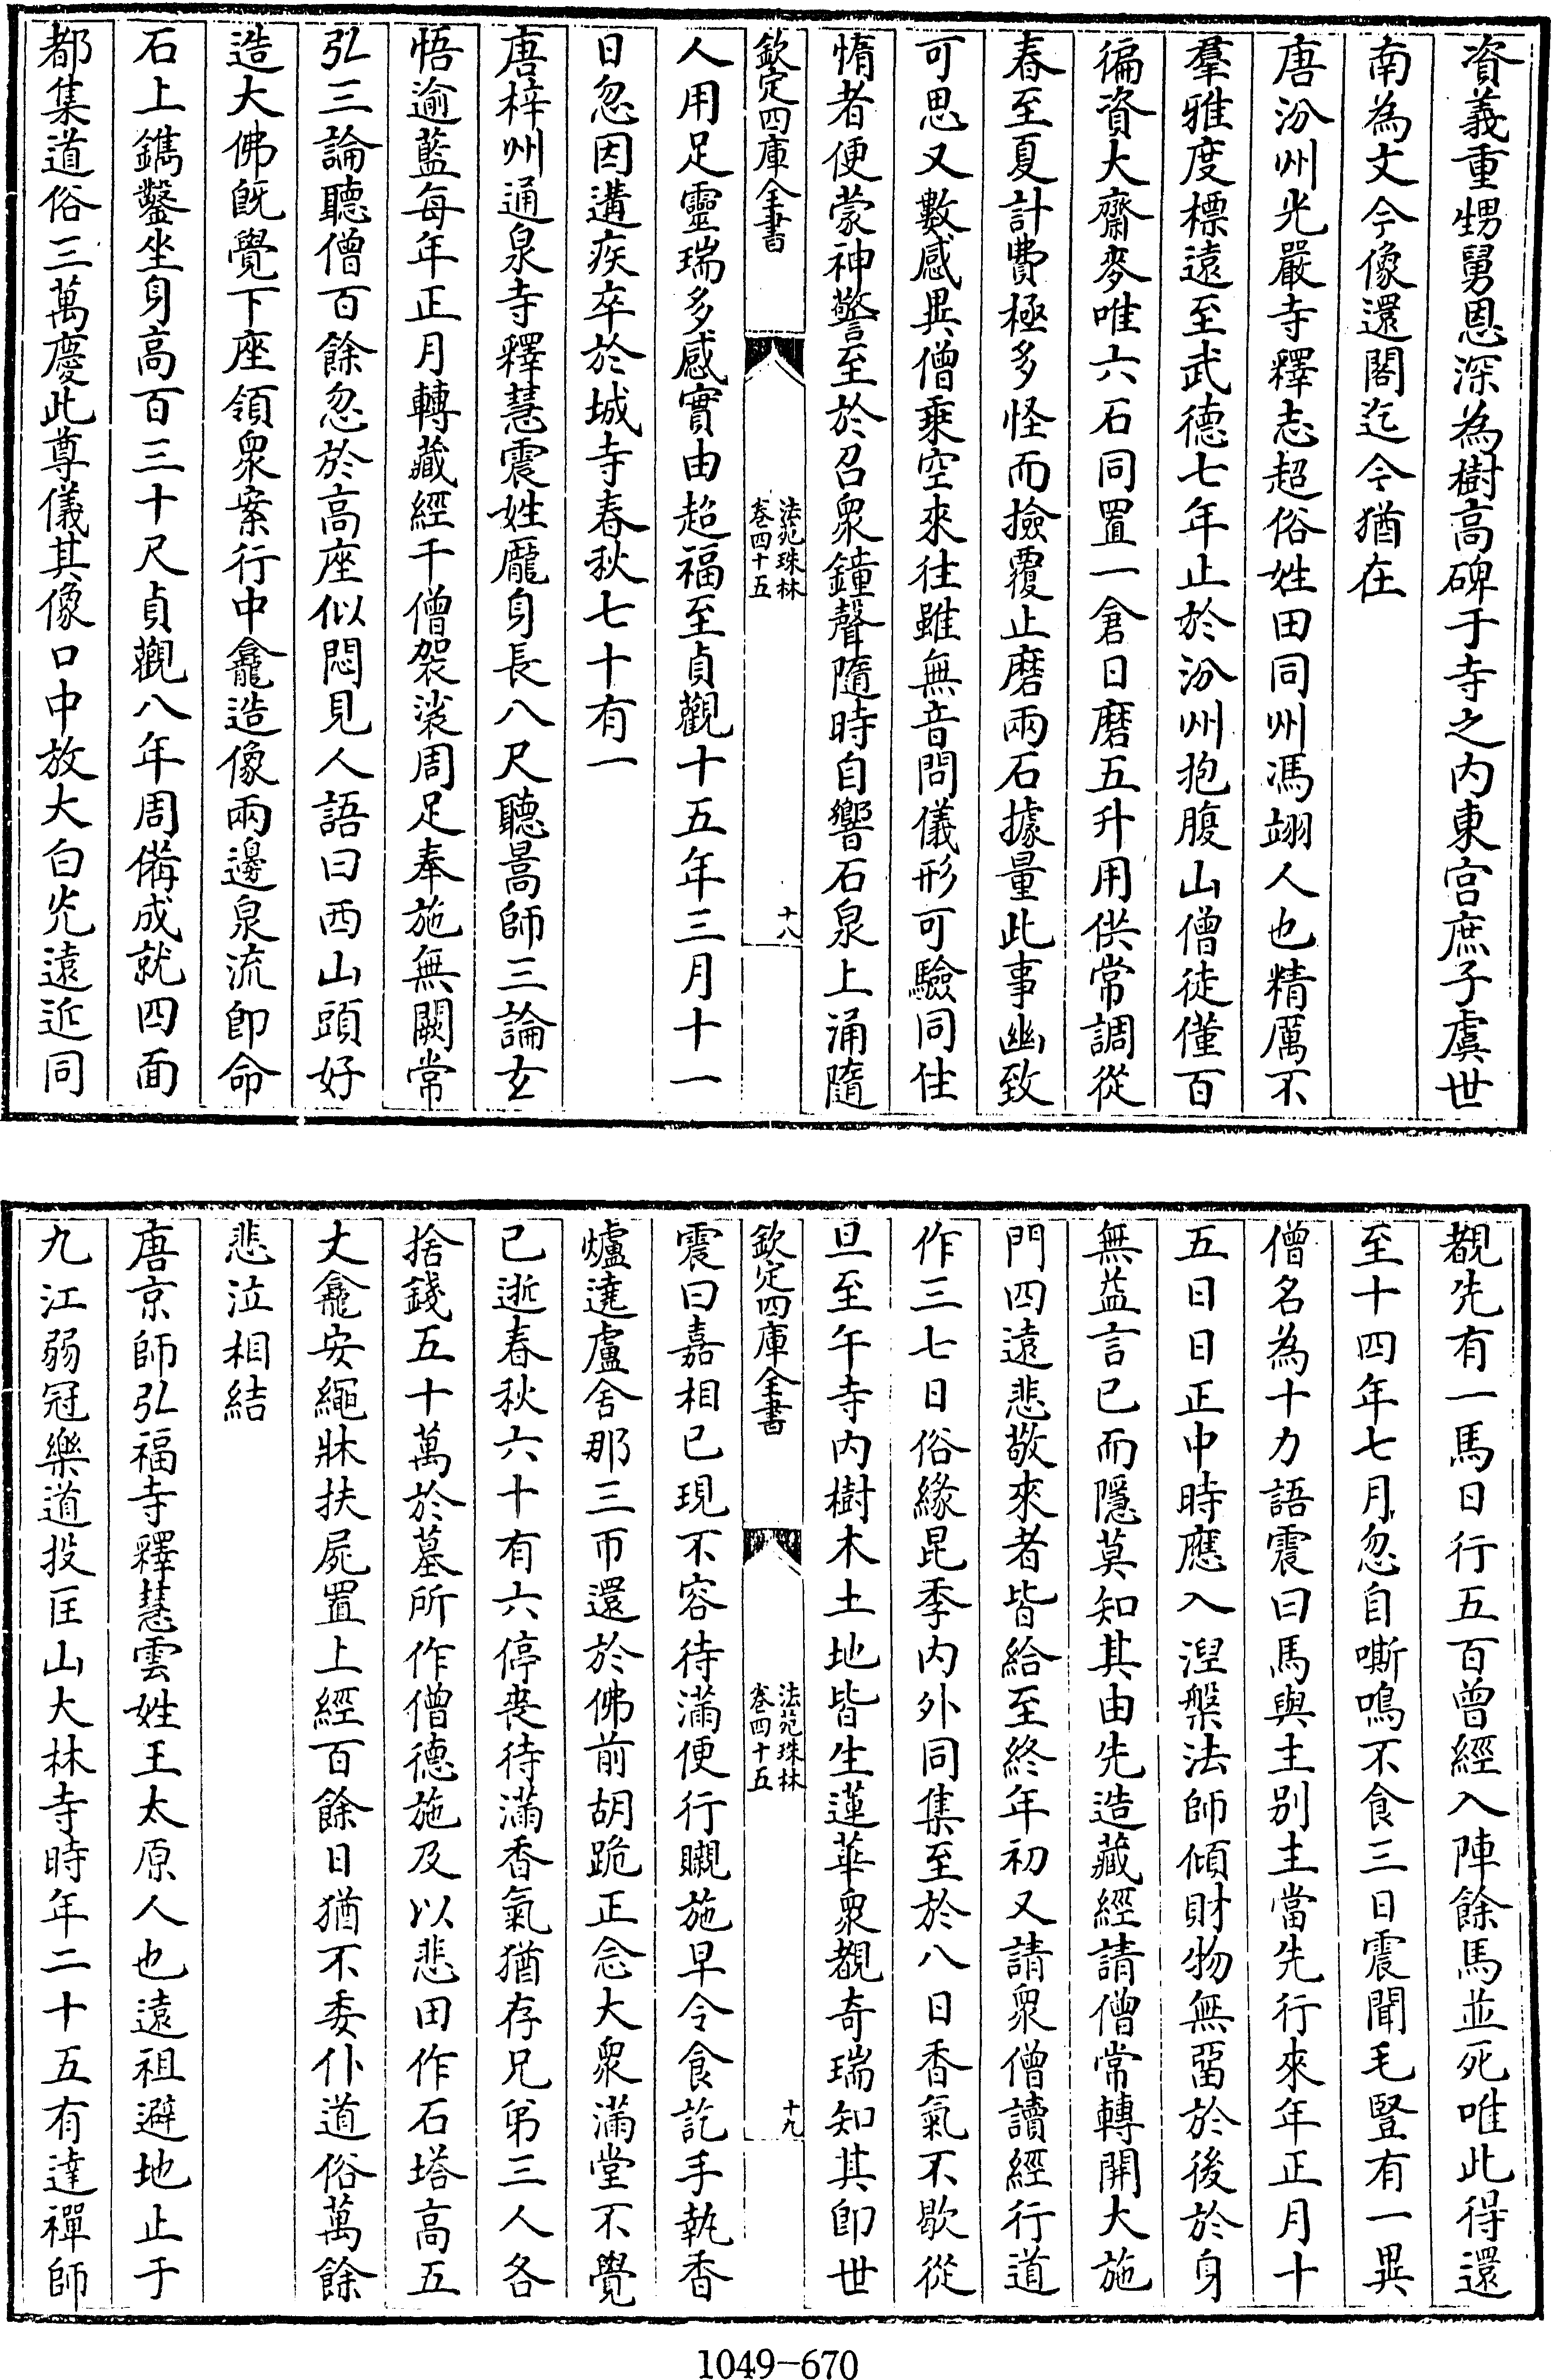 資義重甥舅恩深為樹高碑于寺之内東宫庶子虞世
南為文今像還閣迄今猶在
唐汾州光嚴寺釋志超俗姓田同州馮翊人也精厲不
羣雅度標遠至武德七年止於汾州抱腹山僧徒僅百
徧資大齋麥唯六石同置一倉日磨五升用供常調從
春至夏計費極多怪而撿覆止磨兩石據量此事幽致
可思又數感異僧乗空來往雖無音問儀形可驗同住
惰者便蒙神警至於召衆鐘聲隨時自響石泉上涌隨
欽定四庫全書
法苑珠林
卷四十五
十八
人用足靈瑞多感實由超福至貞觀十五年三月十一
日忽因遘疾卒於城寺春秋七十有一
唐梓州通泉寺釋慧震姓龎身長八尺聽暠師三論玄
悟逾藍每年正月轉藏經千僧袈裟周足奉施無闕常
弘三論聽僧百餘忽於高座似悶見人語曰西山頭好
造大佛旣覺下座領衆案行中龕造像兩邊泉流即命
石上鐫鑿坐身高百三十尺貞觀八年周備成就四面
都集道俗三萬慶此尊儀其像口中放大白光遠近同
覩先有一馬日行五百曾經入陣餘馬並死唯此得還
至十四年七月忽自嘶鳴不食三日震聞毛豎有一異
僧名為十力語震曰馬與主别主當先行來年正月十
五日日正中時應入湼槃法師傾財物無留於後於身
無益言已而隱莫知其由先造藏經請僧常轉開大施
門四遠悲敬來者皆給至終年初又請衆僧讀經行道
作三七日俗緣昆季内外同集至於八日香氣不歇從
旦至午寺内樹木土地皆生蓮華衆覩奇瑞知其即世
欽定四庫全書
法苑珠林
卷四十五
十九
震曰嘉相已現不容待滿便行嚫施早令食訖手執香
爐遶盧舍那三帀還於佛前胡跪正念大衆滿堂不覺
已逝春秋六十有六停喪待滿香氣猶存兄弟三人各
捨錢五十萬於墓所作僧德施及以悲田作石塔高五
丈龕安繩牀扶屍置上經百餘日猶不委仆道俗萬餘
悲泣相結
唐京師弘福寺釋慧雲姓王太原人也遠祖避地止于
九江弱冠樂道投匡山大林寺時年二十五有達禪師
1049-670